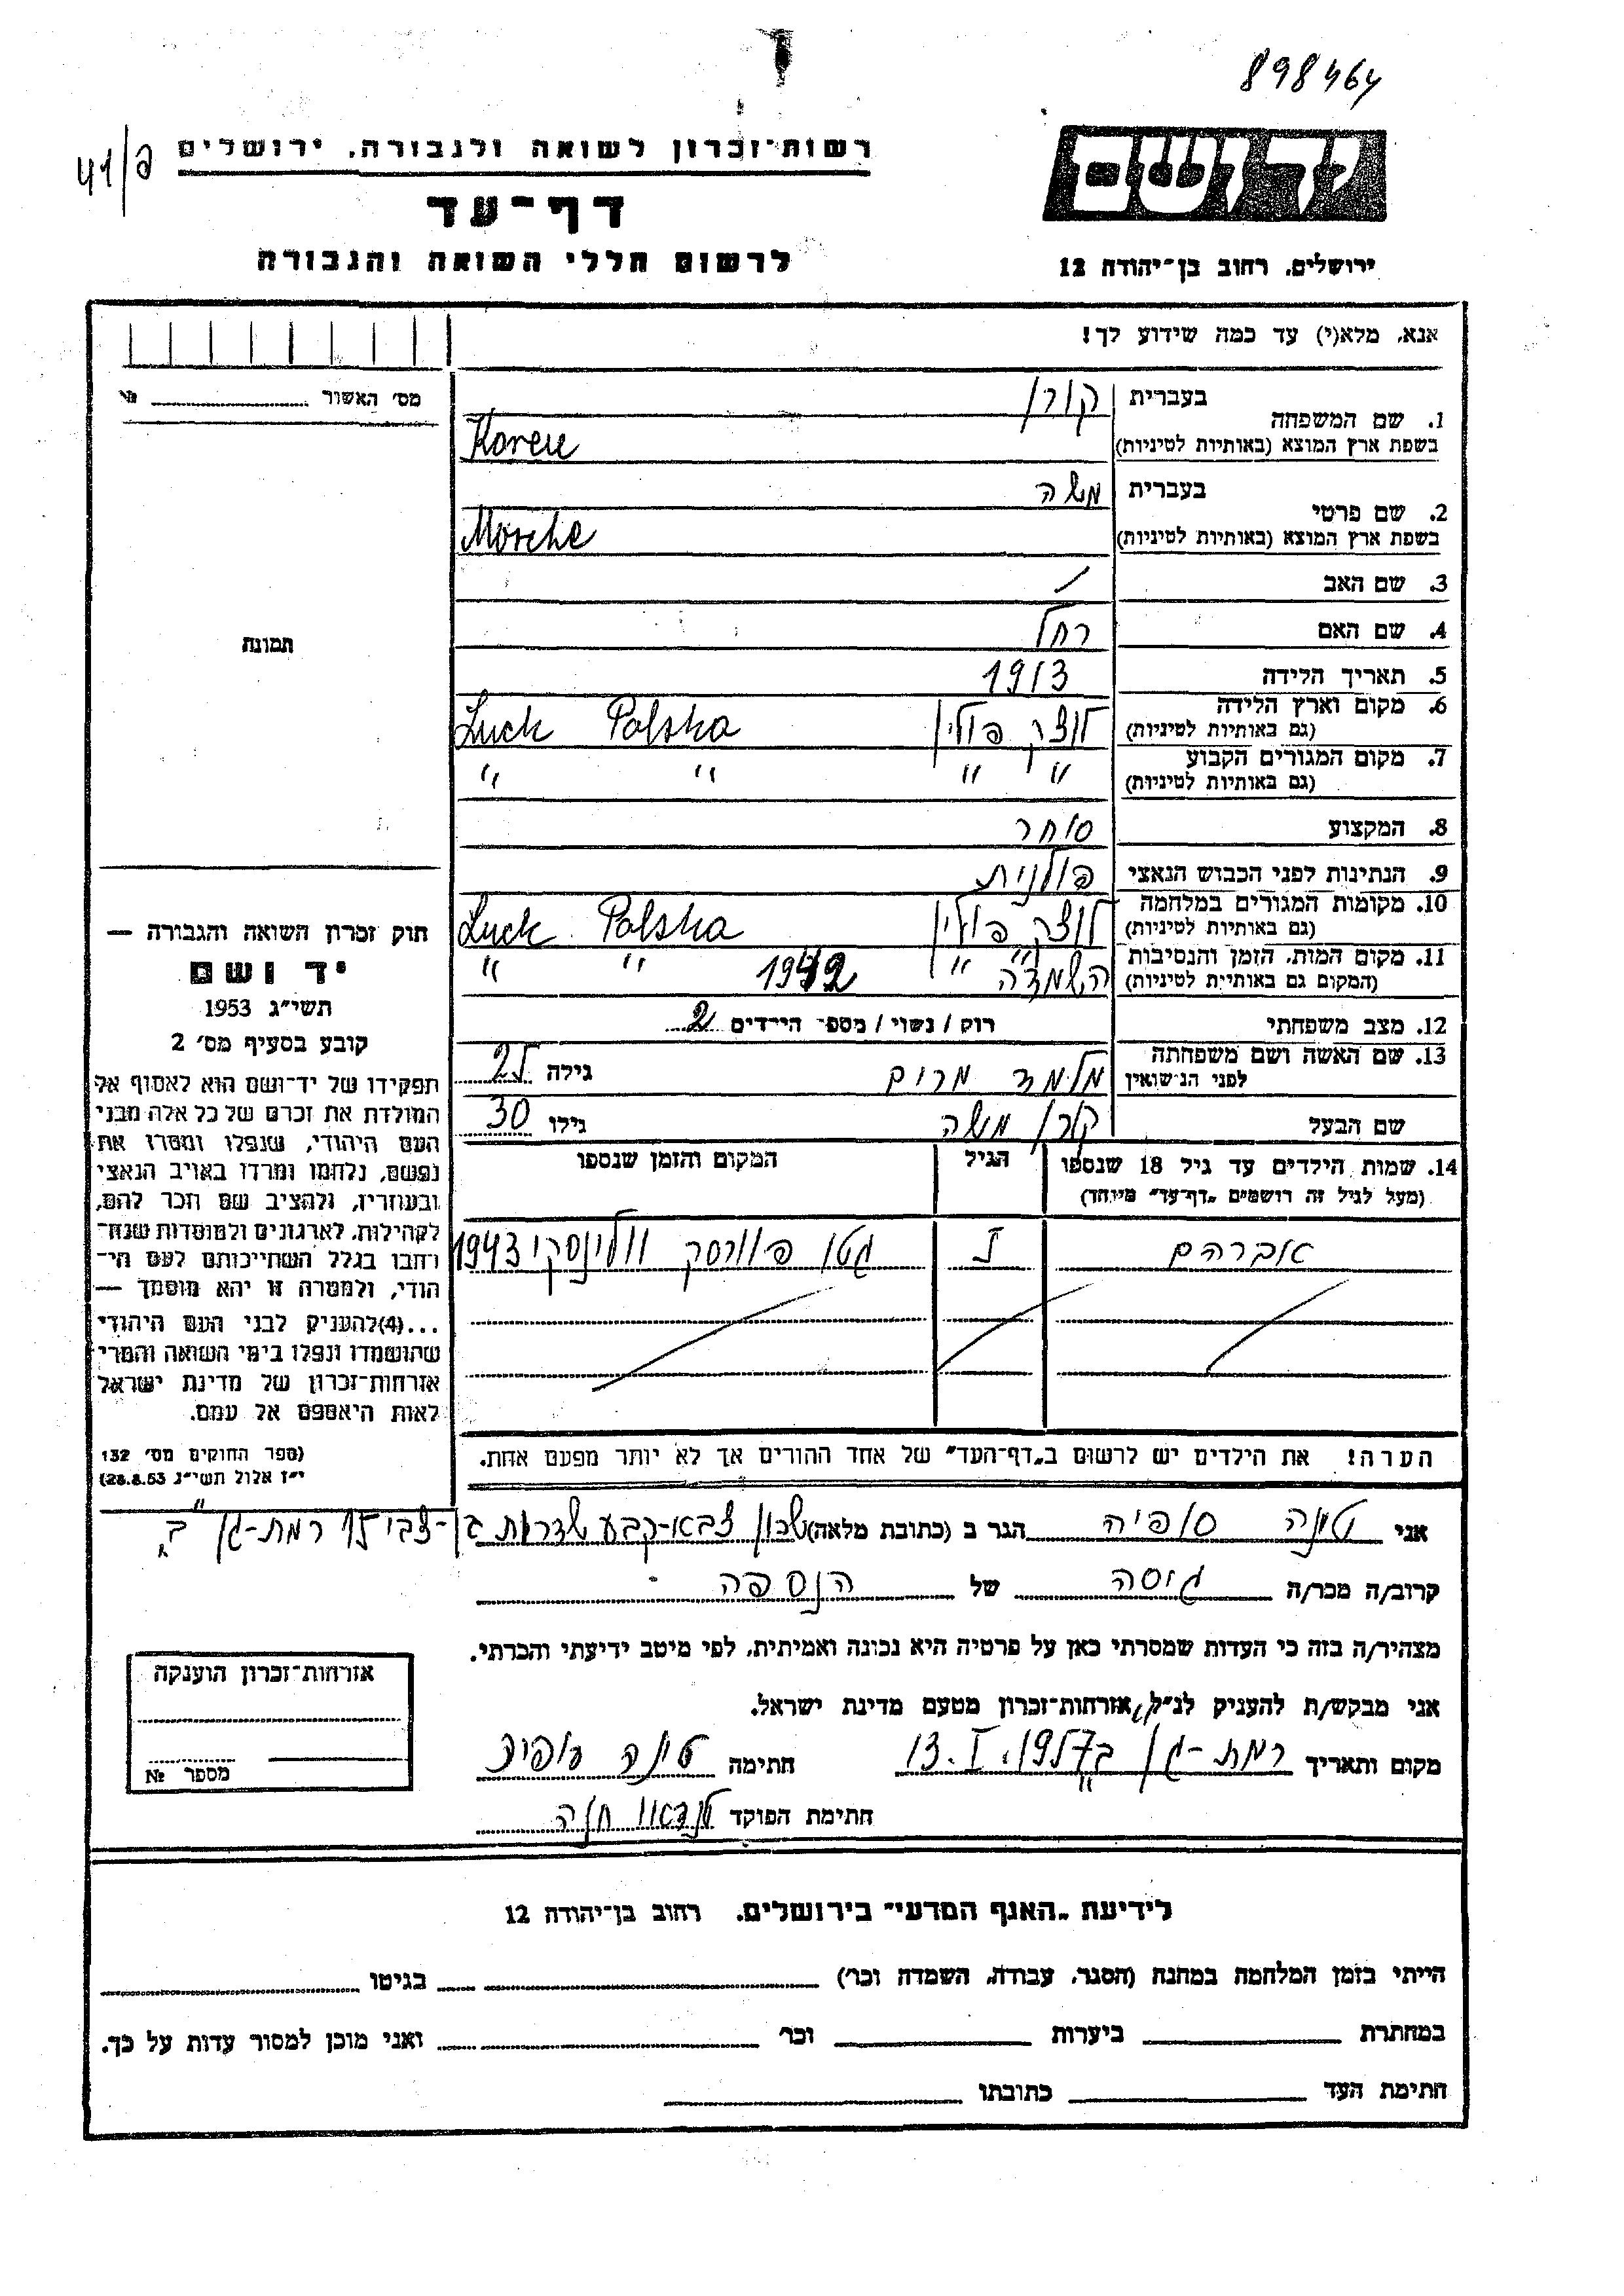 898464
41/ק
רשות־זכרון לשואה ולגבורה, ירושלים
ידושם
דף־עד
לרשום חללי השואה והגבורה
ירושלים, רחוב בן־יהודה 12
אנא, מלא(י) עד כמה שידוע לך!
מס׳ האשור №
1. שם המשפחה
בעברית קורן
בשפת ארץ המוצא (באותיות לטיניות) Koren
2. שם פרטי
בעברית משה
בשפת ארץ המוצא (באותיות לטיניות) Morche
3. שם האב /
4. שם האם רחל
תמונה
5. תאריך הלידה 1913
6. מקום וארץ הלידה לוצק פולין Luck Polska
(גם באותיות לטיניות)
7. מקום המגורים הקבוע " " " "
(גם באותיות לטיניות)
8. המקצוע סוחר
9. הנתינות לפני הכבוש הנאצי פולנית
10. מקומות המגורים במלחמה לוצק פולין Luck Polska
(גם באותיות לטיניות)
11. מקום המות, הזמן והנסיבות " " 1942 " "
(המקום גם באותיות לטיניות) השמדה
12. מצב משפחתי רוק / נשוי / מספר הילדים 2
13. שם האשה ושם משפחתה מלמד מרים גילה 25
לפני הנשואין
שם הבעל קורן משה גילו 30
14. שמות הילדים עד גיל 18 שנספו הגיל המקום והזמן שנספו
(מעל לגיל זה רושמים „דף־עד״ מיוחד)
אברהם 5 גטו פוורסק וולינסקי 1943
הערה! את הילדים יש לרשום ב„דף־העד״ של אחד ההורים אך לא יותר מפעם אחת.
חוק זכרון השואה והגבורה —
יד ושם
תשי״ג 1953
קובע בסעיף מס׳ 2
תפקידו של יד־ושם הוא לאסוף אל
המולדת את זכרם של כל אלה מבני
העם היהודי, שנפלו ומסרו את
נפשם, נלחמו ומרדו באויב הנאצי
ובעוזריו, ולהציב שם וזכר להם,
לקהילות, לארגונים ולמוסדות שנח־
רחבו בגלל השתייכותם לעם הי־
הודי, ולמטרה זו יהא מוסמך —
...(4)להעניק לבני העם היהודי
שהושמדו ונפלו בימי השואה והמרי
אזרחות־זכרון של מדינת ישראל
לאות היאספם אל עמם.
(ספר החוקים מס׳ 132
י״ז אלול תשי״ג 28.8.53)
אני סופיה הגר ב (כתובת מלאה) שכון צבא-קבע שדרות בן-צבי 15 רמת-גן ב
קרוב/ה מכר/ה גיסה של הנספה
מצהיר/ה בזה כי העדות שמסרתי כאן על פרטיה היא נכונה ואמיתית, לפי מיטב ידיעתי והכרתי.
אני מבקש/ת להעניק לנ״ל, אזרחות־זכרון מטעם מדינת ישראל.
מקום ותאריך רמת-גן 13.I.1957 חתימה סופיה
חתימת הפוקד לנדאו חנה
אזרחות־זכרון הוענקה
מספר №
לידיעת „האגף המדעי״ בירושלים, רחוב בן־יהודה 12
הייתי בזמן המלחמה במחנה (הסגר, עבודה, השמדה וכו׳) בגיטו
במחתרת ביערות וכו׳ ואני מוכן למסור עדות על כך.
חתימת העד כתובתו